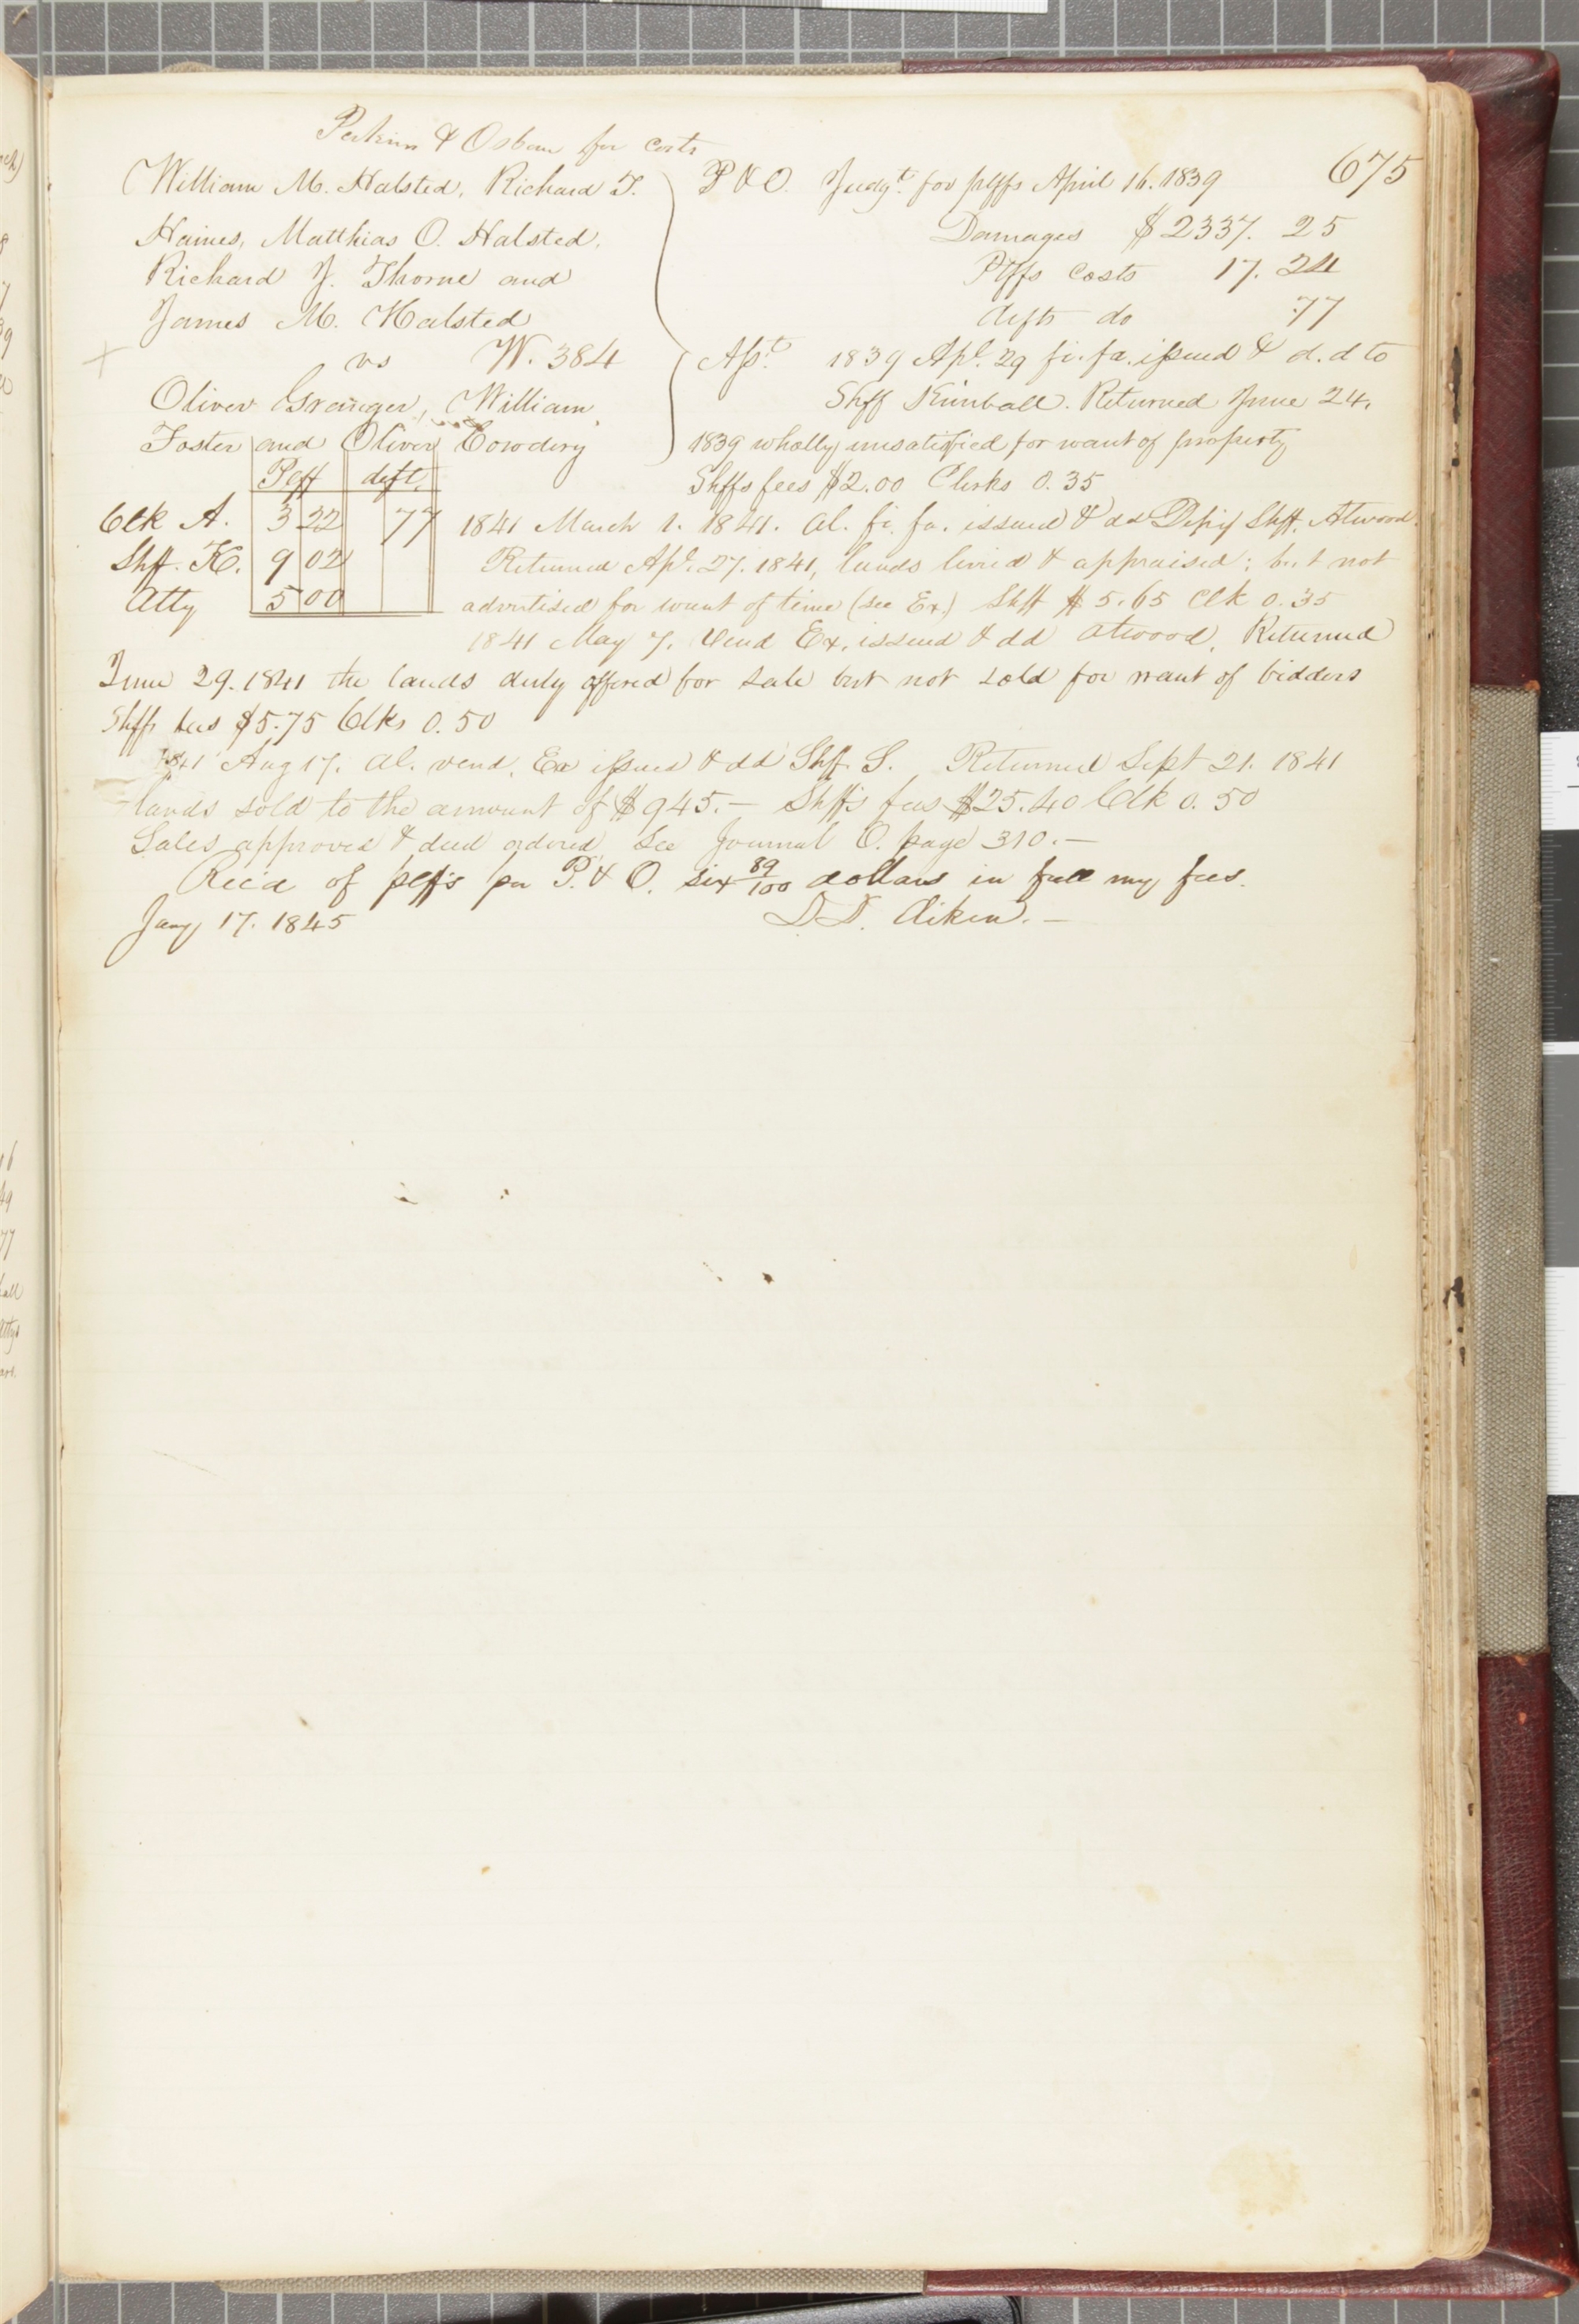 675
Perkins & Osborn for costs
William M. Halsted, Richard T.
Haines, Matthias O. Halsted,
Richard J. Thorne and
James M. Halsted
vs W. 384
Oliver Granger, William
Foster and Oliver Cowdery
P & O. Judgt. for plffs April 16. 1839
Damages $2337. 25
Plffs costs 17. 24
defts do .77
Asst. 1839 Apl. 29 fi. fa. issued & d. d to
Shff Kimball. Returned June 24,
1839 wholly unsatisfied for want of property
Shffs fees $2.00 Clerks 0.35
Plff deft.
Clk A. 3 22 77
Shff. K. 9 02
Atty 5 00
1841 March 1. 1841. Al. fi. fa. issued & dd Depy Shff. Atwood.
Returned Apl. 27. 1841, lands levied & appraised; but not
advertised for want of time (see Ex.) Shff $5.65 Clk 0.35
1841 May 7. Vend Ex, issued & dd Atwood, Returned
June 29. 1841 the lands duly offered for sale but not sold for want of bidders
Shffs fees $5.75 Clks 0.50
1841 Aug 17. Al. vend. Ex issued & dd Shff. S. Returned Sept 21. 1841
lands sold to the amount of $945.— Shffs fees $25.40 Clk 0.50
Sales approved & deed ordered, See Journal O. page 310.—
Rec'd of plffs per P. & O. six 89/100 dollars in full my fees.
Jany 17. 1845 D. D. Aiken.—